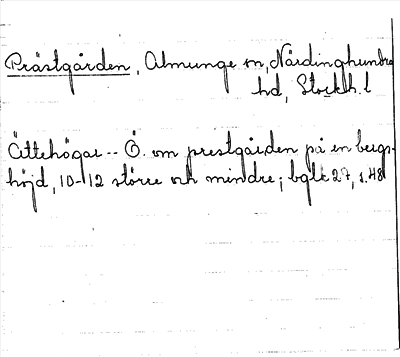 Prästgården, Almunge sn, Närdinghundra
hd, Stockh. l
Ättehögar -- Ö. om prestgården på en bergs-
höjd, 10-12 större och mindre; bglt 27, s. 48